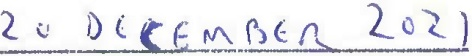 20 DECEMBER 2021